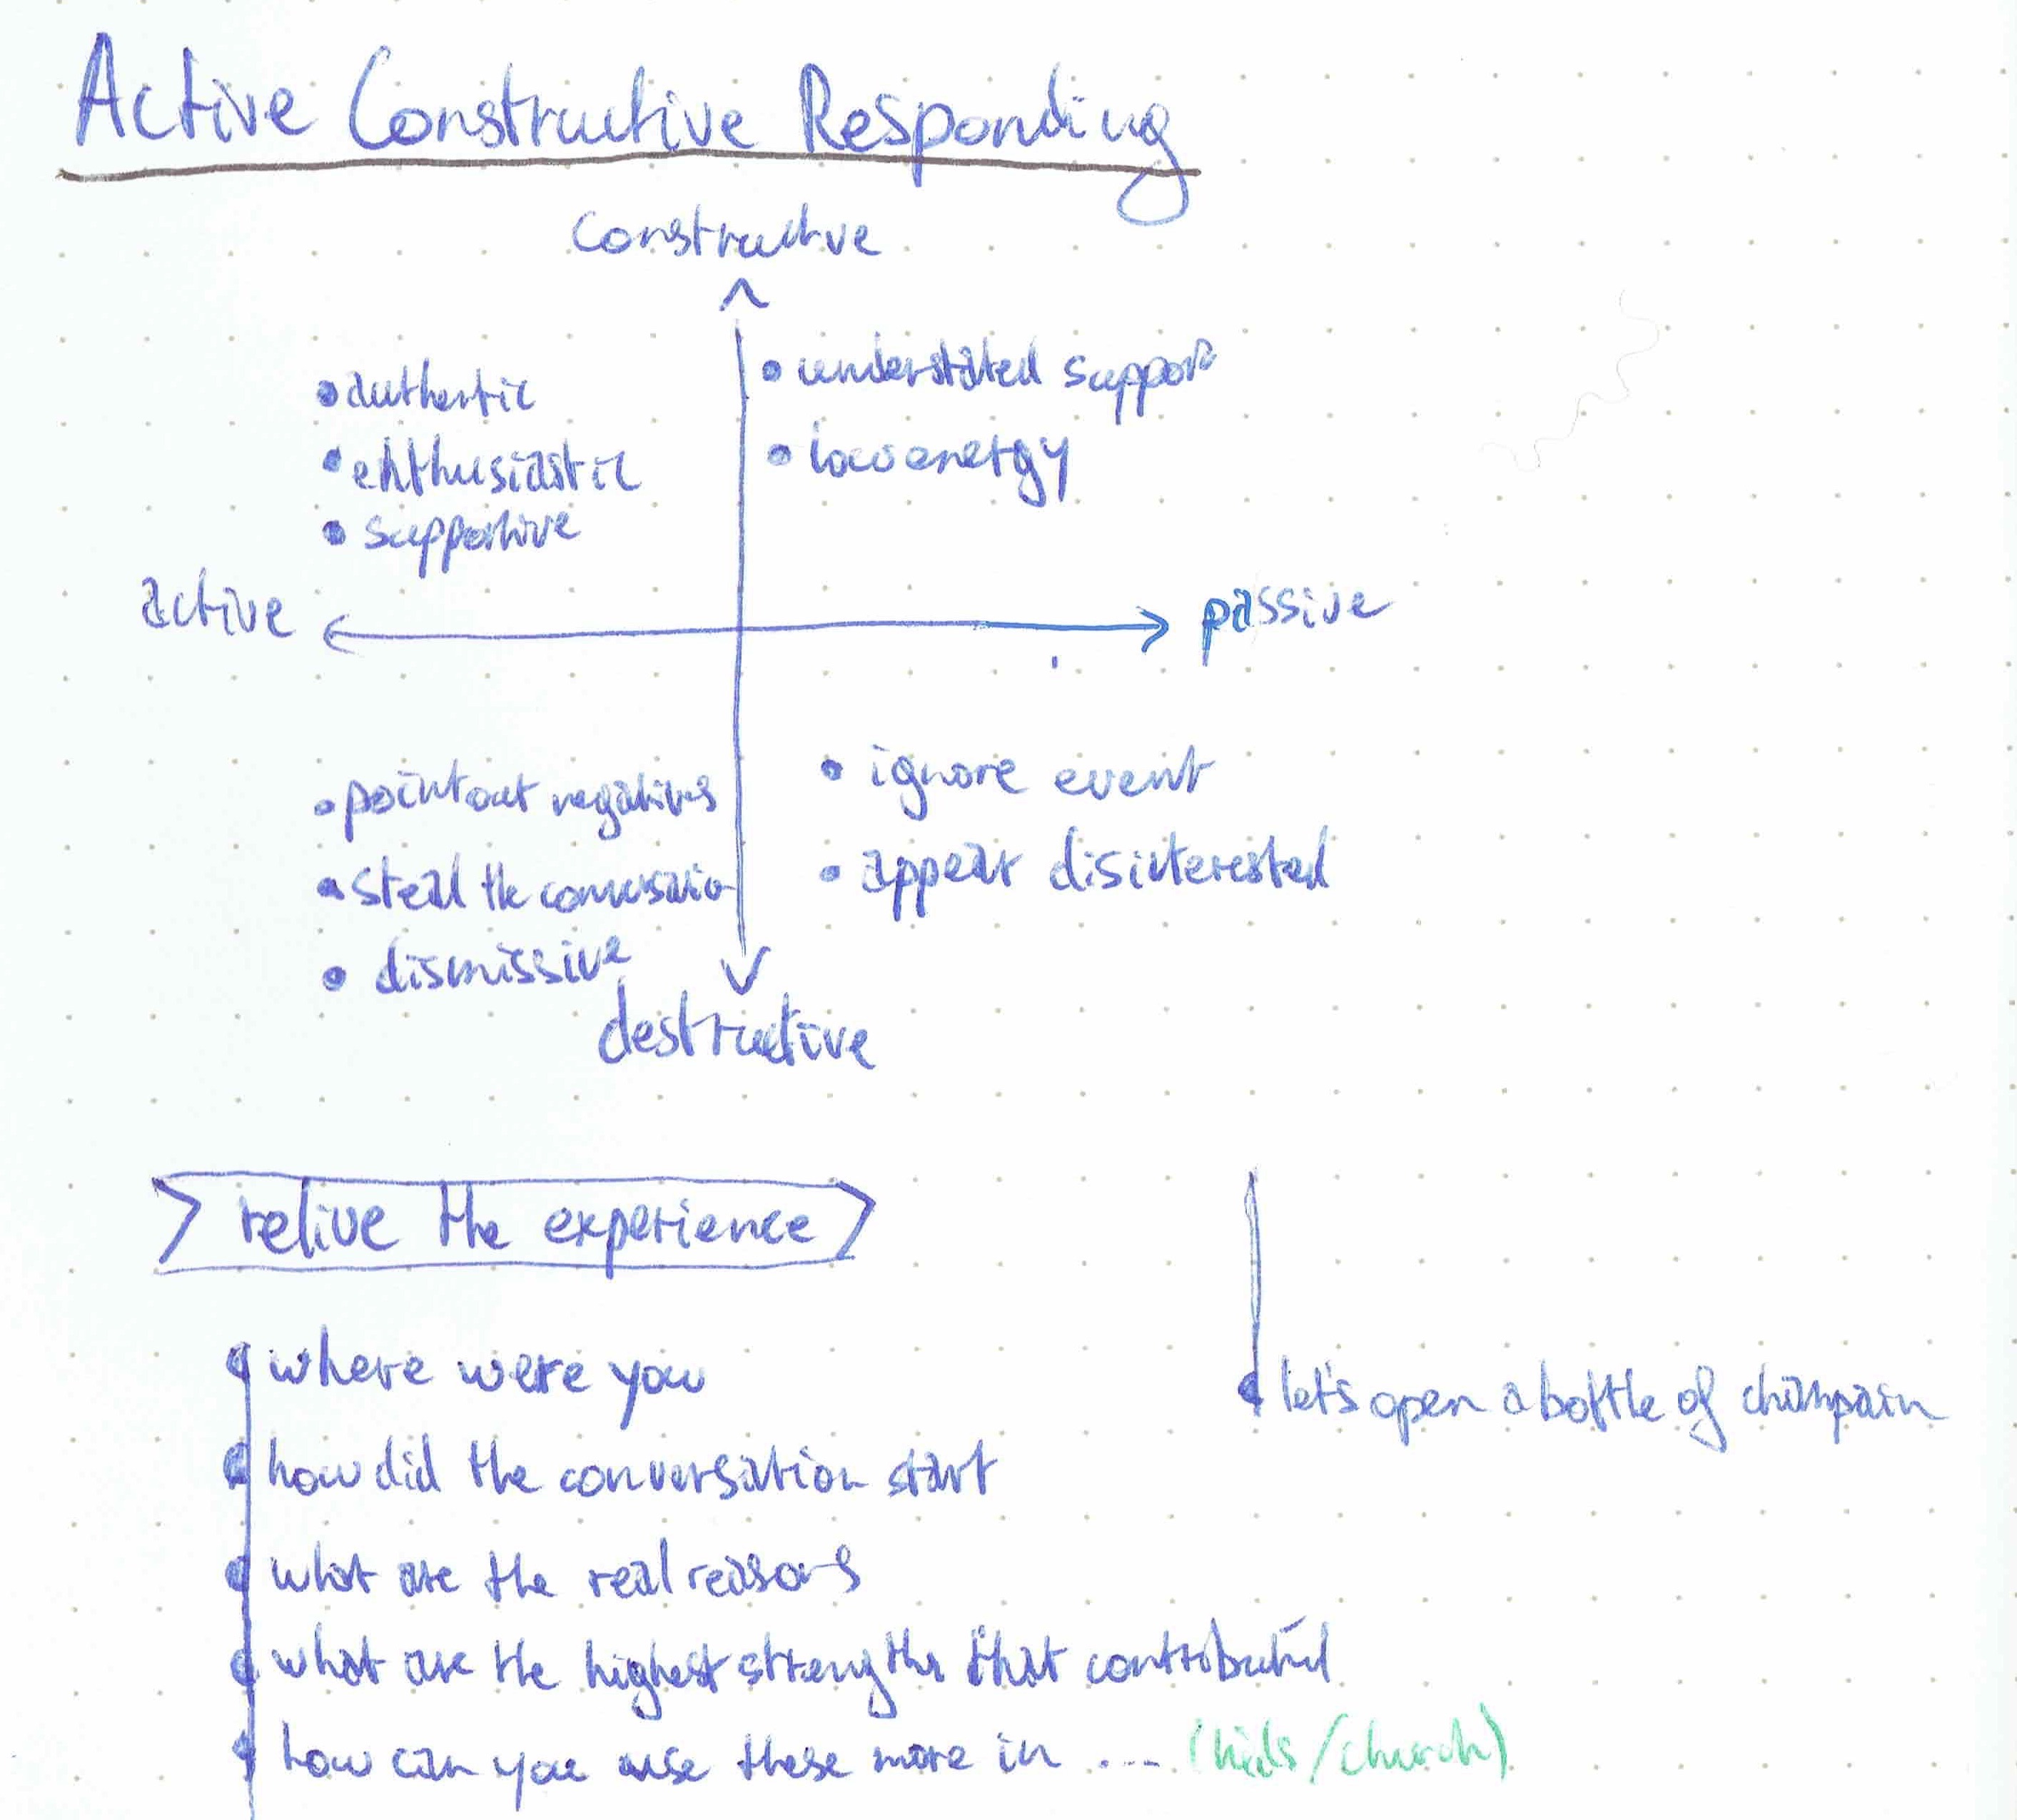 Active Constructive Responding
constructive
• authentic
• enthusiastic
• supportive
• understated support
• low energy
active
passive
• point out negatives
• steal the conversation
• dismissive
• ignore event
• appear disinterested
destructive
relive the experience
• where were you
• how did the conversation start
• what are the real reasons
• what are the highest strengths that contributed
• how can you use these more in ... (kids/church)
• let's open a bottle of champain